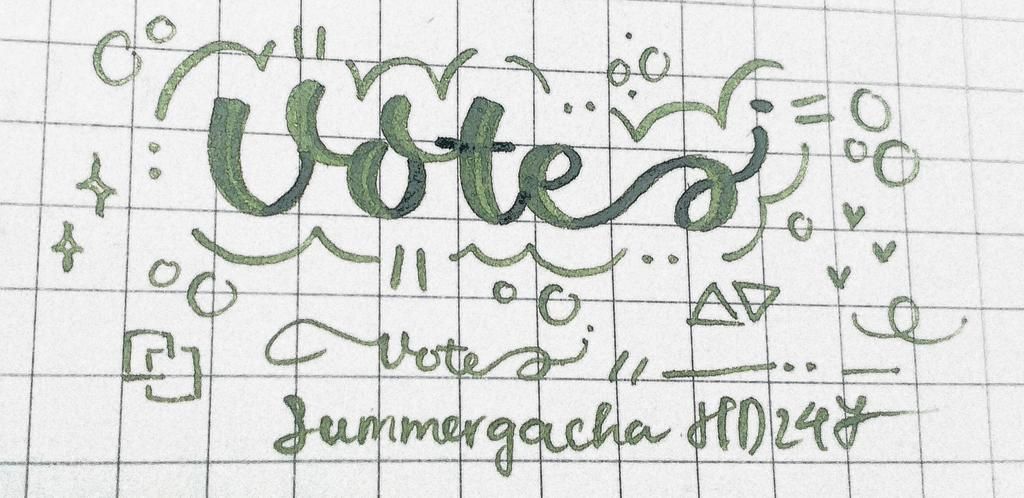 Votes
Votes
Summergacha HD24Y